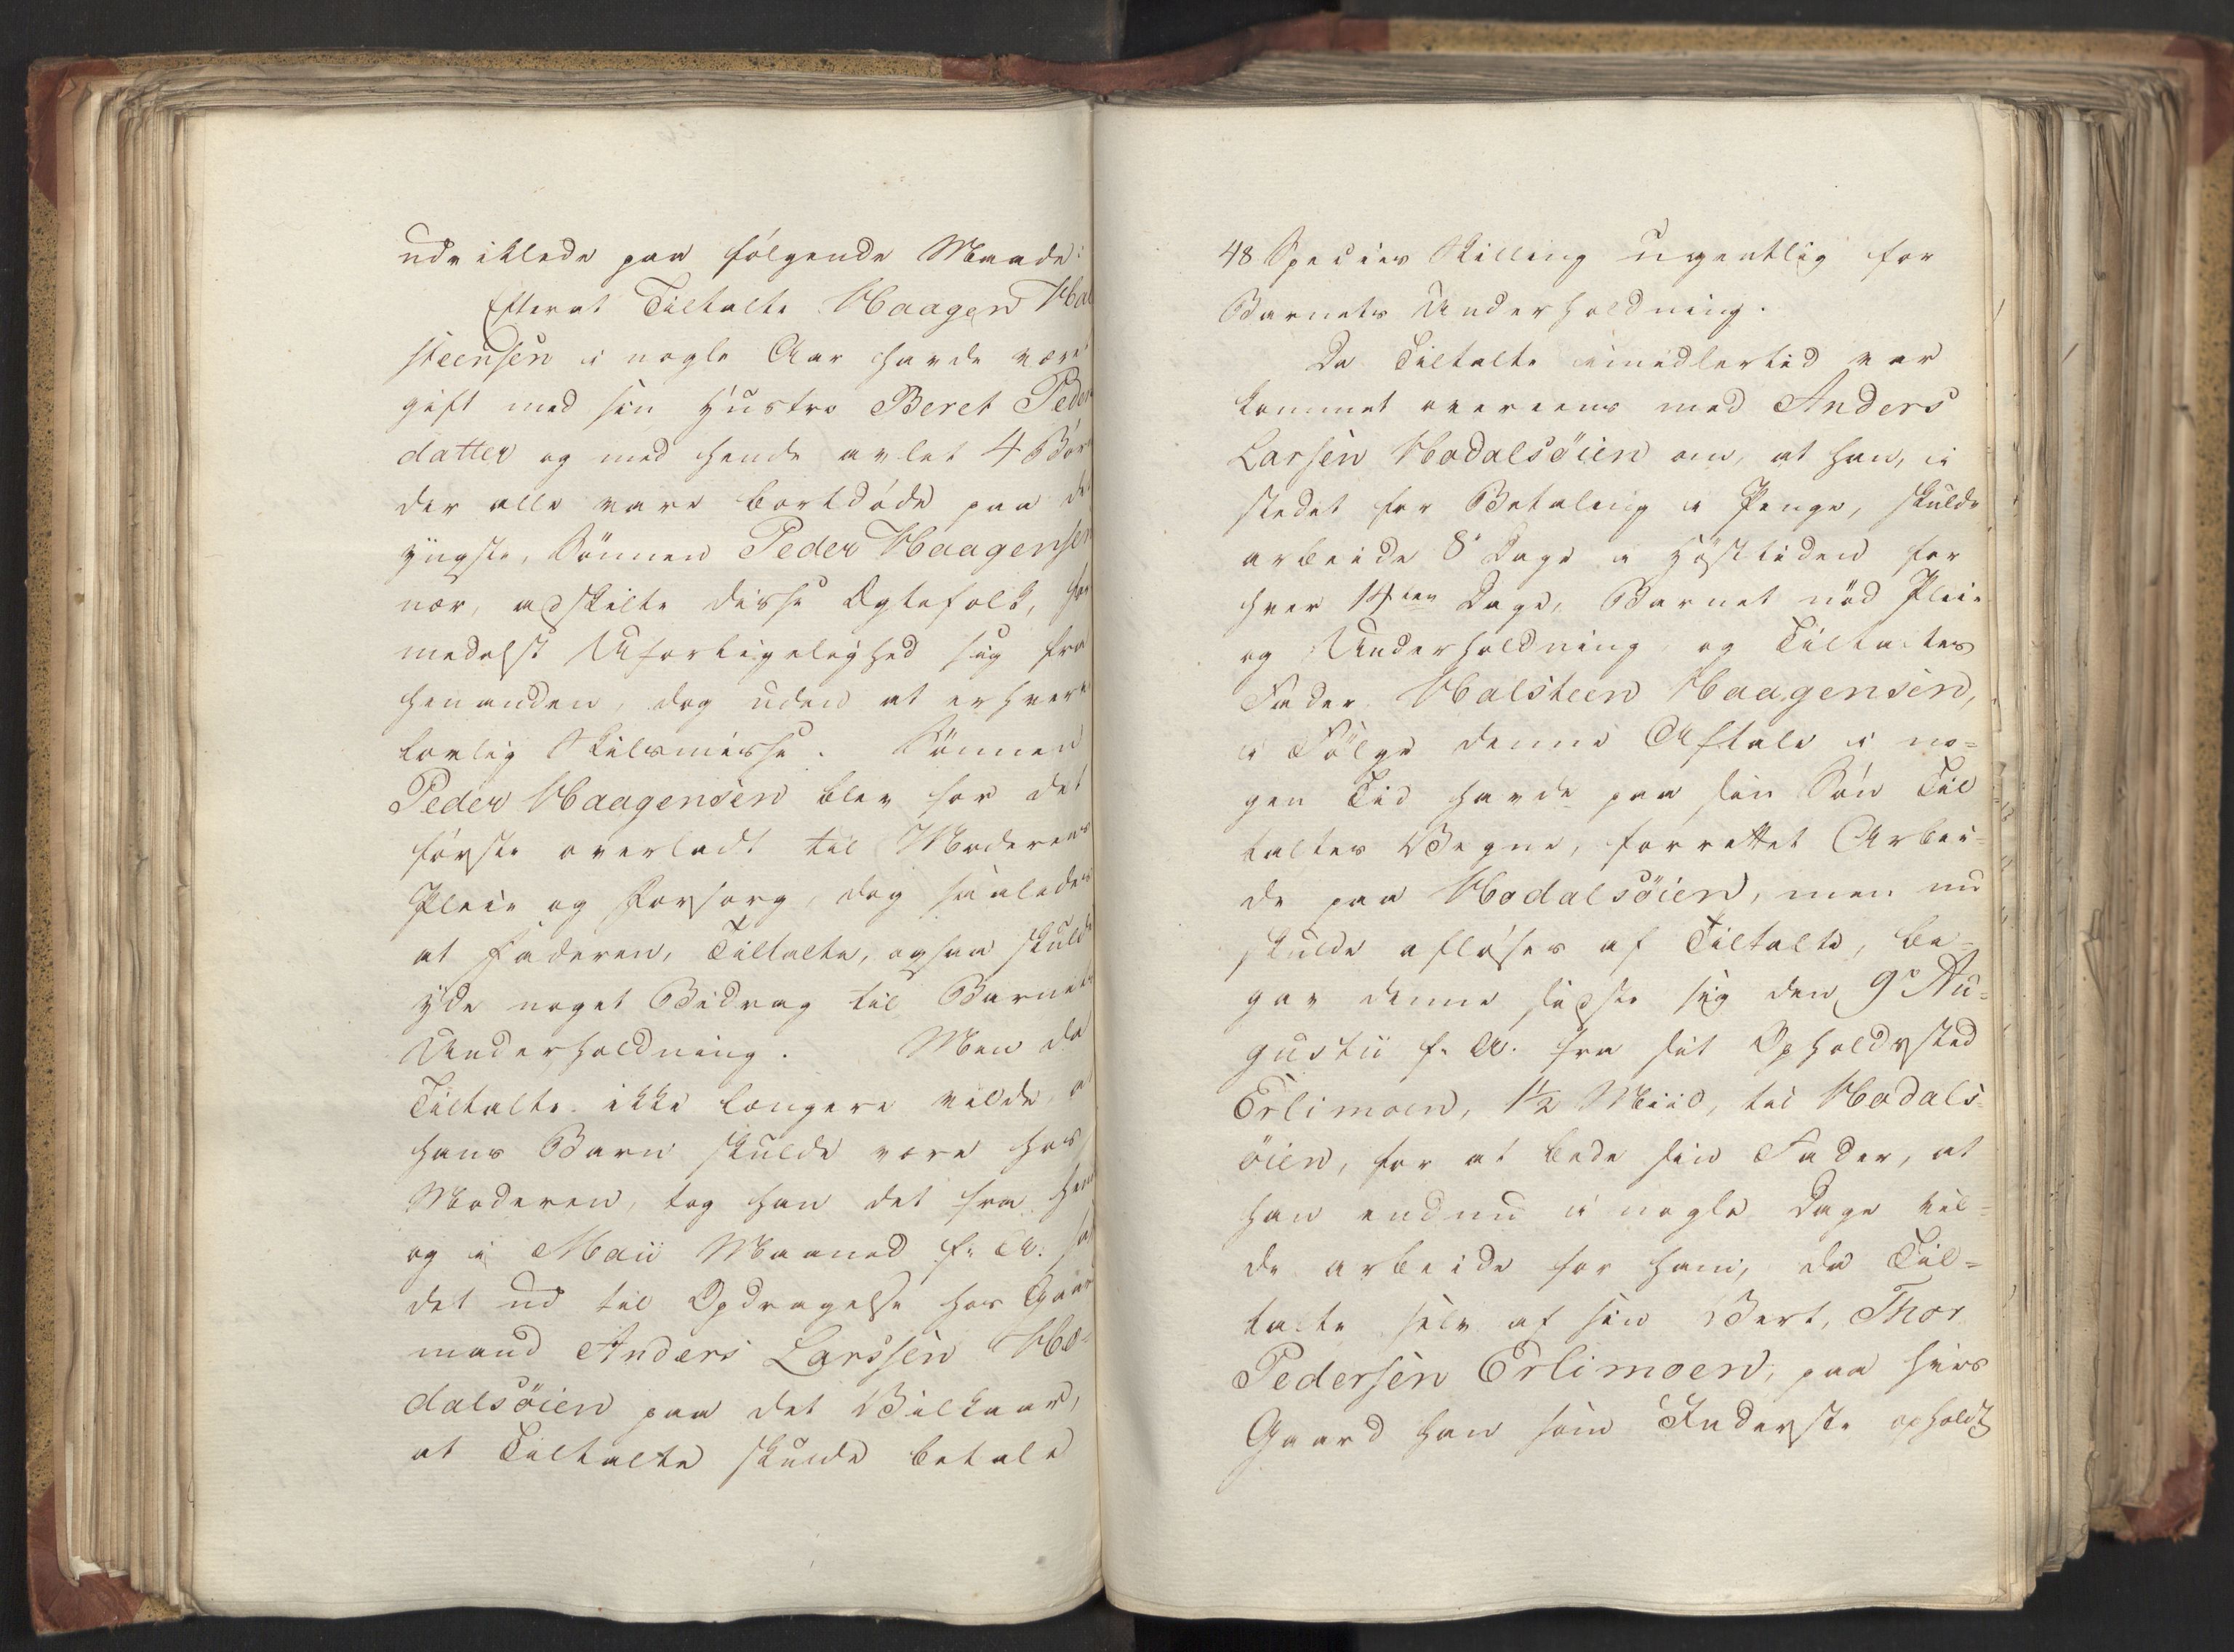 udviklede paa følgende Maade:
Efterat Tiltalte Haagen Hal
steensen i nogle Aar havde være
gift med sin Hustro Beret Peder
datter og med hende avlet 4 Børn
der alle vare bortdøde paa de
yngste, Sønnen Peder Haagensen
nær, adskilte disse Ægtefolk, for
medelst Uforligelighed sig fra
hinanden, dog uden at erhverve
lovlig Skilsmisse. Sønnen
Peder Haagensen blev for det
første overladt til Moderens
Pleie og Forsorg, dog saaledes
at Faderen, Tiltalte, ogsaa skulde
yde noget Bidrag til Barnets
Underholdning. Men da
Tiltalte ikke længere vilde, at
hans Barn skulde være hos
Moderen, tog han det fra hen
og i Maii Maaned f. A. sat
det ud til Opdragelse hos Gaar
mand Anders Larssen Ho-
dalsøien paa det Vilkaar,
at Tiltalte skulde betale
48 Species Skilling ugentlig for
Barnets Underholdning.
Da Tiltalte imidlertid var
kommet overeens med Anders
Larsen Hodalsøien om, at han, i
stedet for Betaling i Penge, skulde
arbeide 8 Dage i Høsttiden for
hver 14ten Dage, Barnet nød Pleie
og Underholdning, og Tiltaltes
Fader Halsteen Haagensen,
i Følge denne Aftale i no-
gen Tid havde paa sin Søn Til
taltes Vegne, forrettet Arbei-
de paa Hodalsøien, men nu
skulde afløses af Tiltalte, be-
gav denne sidste sig den 9de Au-
gustii f. A. fra sit Opholdssted
Erlimoen, 1½ Miil, til Hodals-
øien, for at bede sin Fader, at
han endnu i nogle Dage vil-
de arbeide for ham, da Til-
talte selv af sin Vert, Thor
Pedersen Erlimoen, paa hvis
Gaard han som Inderste opholdt